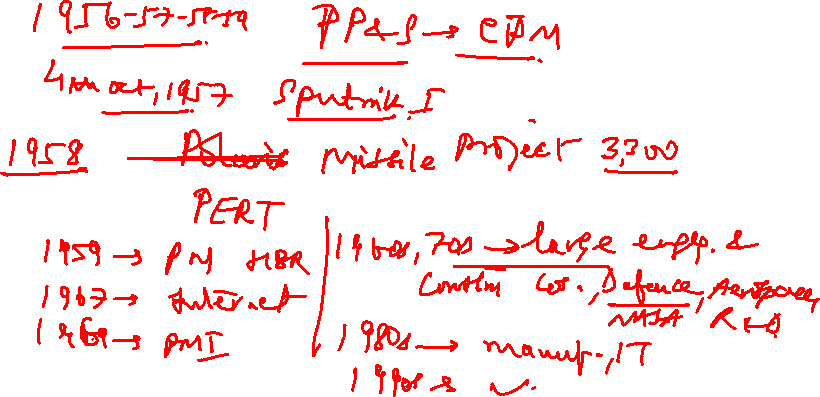 1956-57-58-59 PP&S → CPM
4th oct, 1957 Sputnik I
1958 Polaris Missile Project 3,300
PERT
1959 → PM HBR
1967 → Internet
1969 → PMI
1960s, 70s → large engg. &
Constn Cos., Defence, Aerospace,
NASA R&D
1980s → manuf., IT
1990s ✓